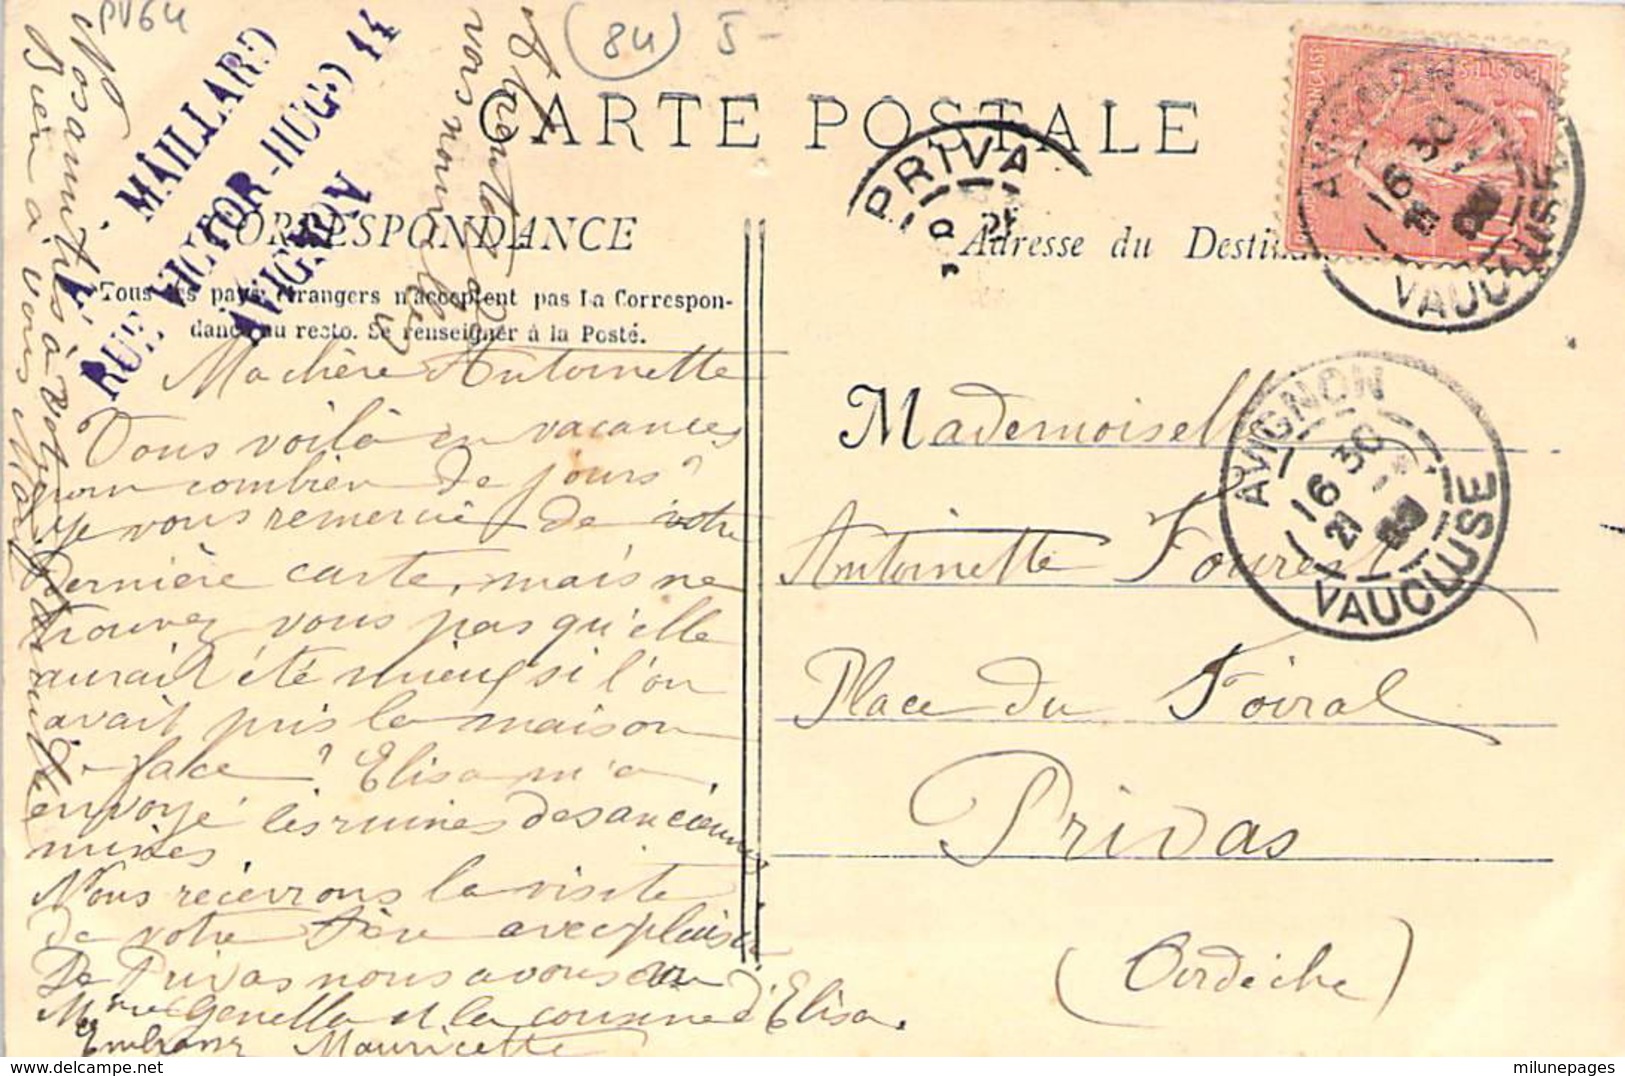 PV64
(84) 5-
A. MAILLARD
RUE VICTOR-HUGO 44
AVIGNON
CARTE POSTALE
PRIVA
AVIGNON
16 30
21
VAUCLUSE
CORRESPONDANCE
Adresse du Destin
Tous les pays étrangers n'acceptent pas la Correspon-
dance au recto. Se renseigner à la Poste.
Ma chère Antoinette
Vous voilà en vacances
pour combien de jours?
Je vous remercie de votre
dernière carte, mais ne
trouvez vous pas qu'elle
aurait été mieux si l'on
avait pris la maison
d'face? Elisa m'a
envoyé les ruines des anciennes
mines.
Nous recevrons la visite
de votre frère avec plaisir.
De Privas nous avons eu
Mme Genella et la cousine d'Elisa.
Embrassez Mauricette
Nos amitiés à votre
Bien à vous Marg
vous nouvelle
Mademoiselle
Antoinette Fourest
Place du Foiral
Privas
(Ardèche)
AVIGNON
16 30
21
VAUCLUSE
milunepages